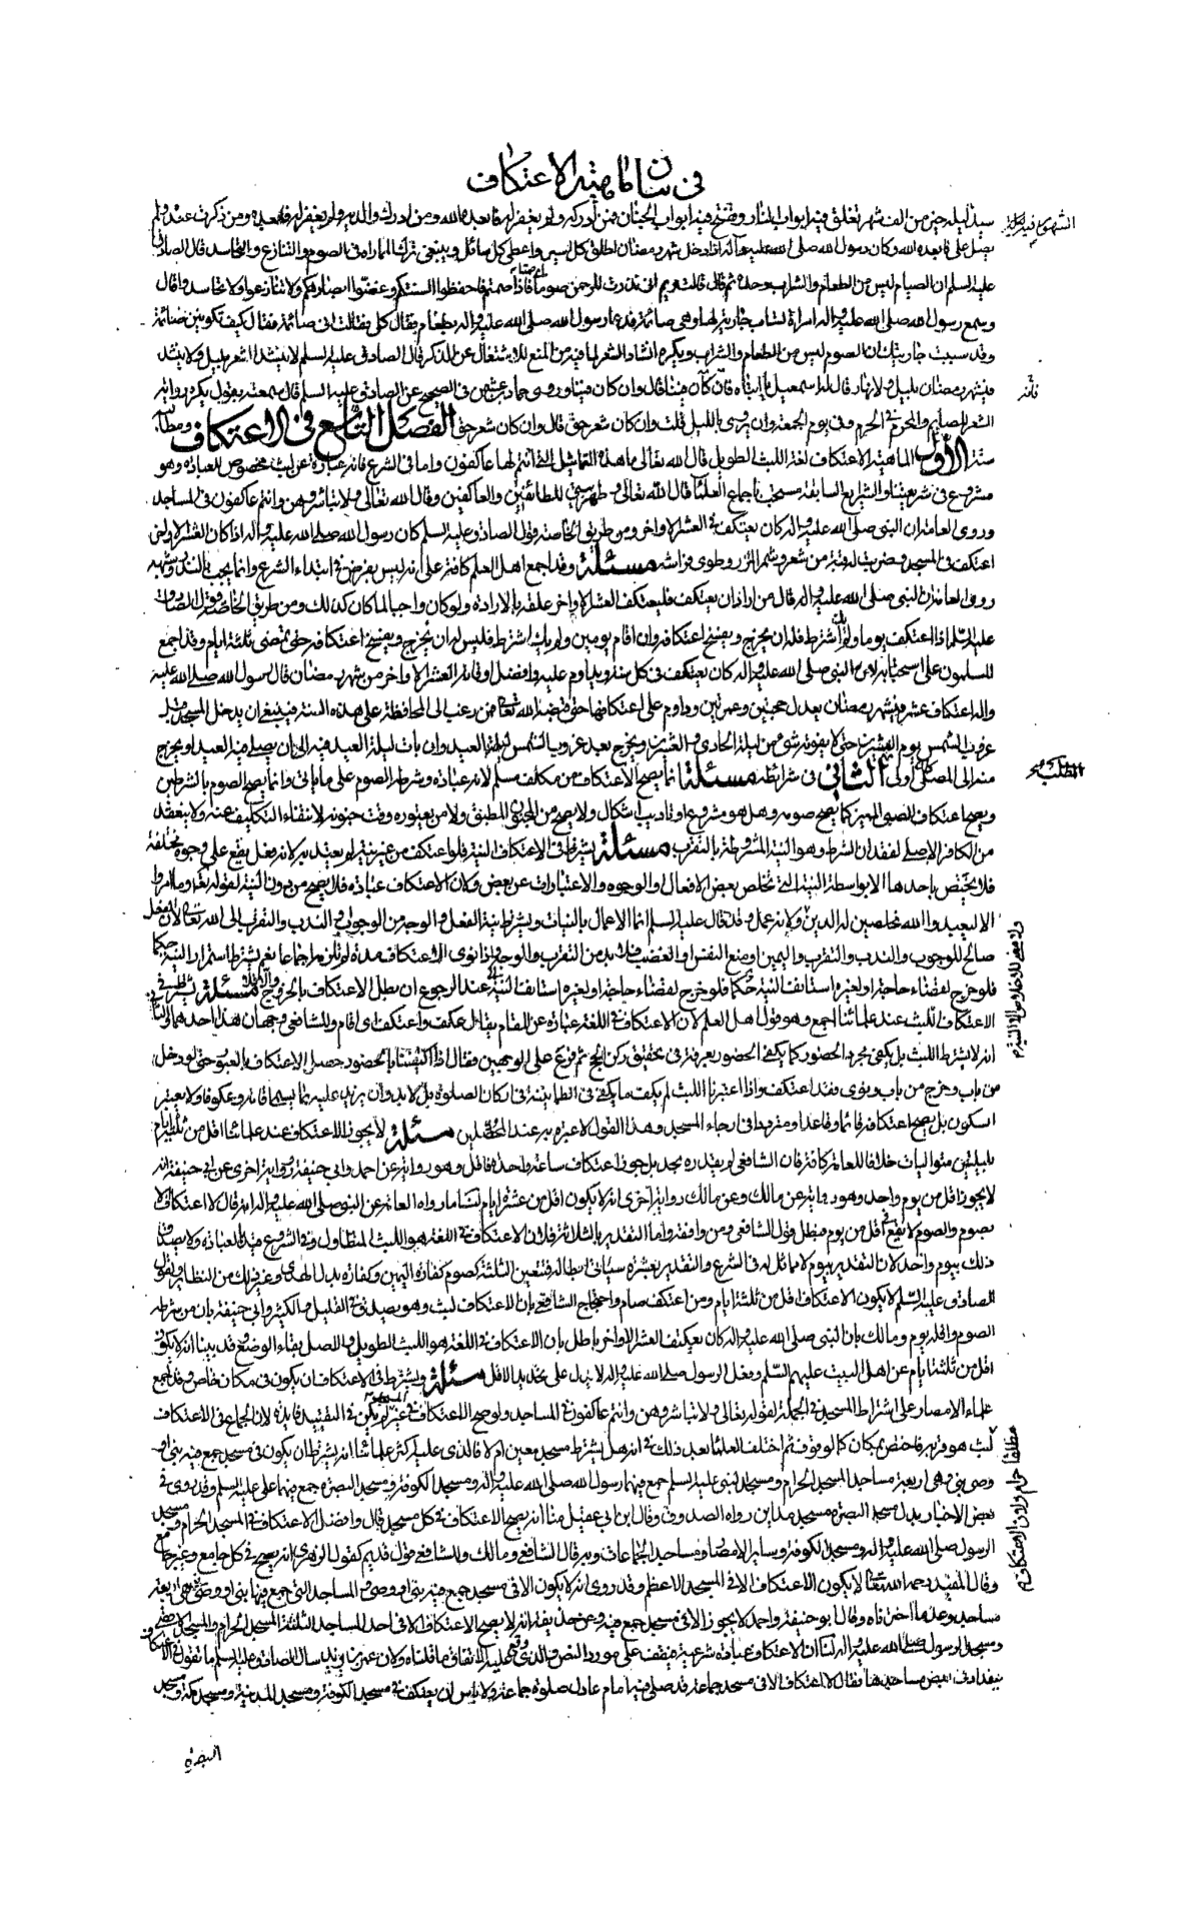 في بيان ماهية الاعتكاف
فيه ليلة خير من الف شهر تغلق فيه ابواب النار وتفتح فيه ابواب الجنان فمن ادركه ولم يغفر له فابعده الله ومن ادرك والديه ولم يغفر له فابعده ومن ذكرت عنده ولم
يصل علي فابعده الله وكان رسول الله صلى الله عليه وآله اذا دخل شهر رمضان اطلق كل اسير واعطى كل سائل وينبغي ترك المماراة في الصوم والتنازع والتحاسد قال الصادق
عليه السلم ان الصيام ليس من الطعام والشراب وحده ثم قال قالت مريم اني نذرت للرحمن صوما اي صمتا فاذا صمتم فاحفظوا السنتكم وغضوا ابصاركم ولا تنازعوا ولا تحاسدوا قال
وسمع رسول الله صلى الله عليه واله امراة تساب جارية لها وهي صائمة فدعا رسول الله صلى الله عليه واله بطعام فقال كلي فقالت اني صائمة فقال كيف تكونين صائمة
وقد سببت جاريتك ان الصوم ليس من الطعام والشراب ويكره انشاد الشعر لما فيه من المنع للاشتغال عن الذكر قال الصادق عليه السلم لا ينشد الشعر بليل ولا ينشد
في شهر رمضان بليل ولا نهار قال له اسمعيل يا ابتاه فان كان فينا قال وان كان فينا وروى حماد بن عثمن في الصحيح عن الصادق عليه السلم قال سمعته يقول يكره رواية
الشعر للصايم والمحرم في الحرم وفي يوم الجمعة وان يروى بالليل قلت وان كان شعر حق قال وان كان شعر حق الفصل التاسع في الاعتكاف ومطالبه
ستة الاول الماهية الاعتكاف لغة اللبث الطويل قال الله تعالى ما هذه التماثيل التي انتم لها عاكفون واما في الشرع فانه عبارة عن لبث مخصوص للعبادة وهو
مشروع في شريعتنا والشرايع السابقة مستحب باجماع العلماء قال الله تعالى وطهر بيتي للطائفين والعاكفين وقال الله تعالى ولا تباشروهن وانتم عاكفون في المساجد
وروى العامة ان النبي صلى الله عليه واله كان يعتكف في العشر الاواخر ومن طريق الخاصة قول الصادق عليه السلم كان رسول الله صلى الله عليه واله اذا كان العشر الاواخر
اعتكف في المسجد وضربت له قبة من شعر وشمر الميزر وطوى فراشه مسئلة وقد اجمع اهل العلم كافة على انه ليس بفرض في ابتداء الشرع وانما يجب بالنذر وشبهه
روى العامة ان النبي صلى الله عليه واله قال من اراد ان يعتكف فليعتكف العشر الاواخر علقه بالارادة ولو كان واجبا لما كان كذلك ومن طريق الخاصة قول الصادق
عليه السلم اذا اعتكف يوما ولم يكن اشترط فله ان يخرج ويفسخ اعتكافه وان اقام يومين ولم يك اشترط فليس له ان يخرج ويفسخ اعتكافه حتى تمضي ثلثة ايام وقد اجمع
المسلمون على استحبابه لان النبي صلى الله عليه واله كان يعتكف في كل سنة ويداوم عليه وافضل اوقاته العشر الاواخر من شهر رمضان قال رسول الله صلى الله عليه
واله اعتكاف عشر في شهر رمضان يعدل حجتين وعمرتين وداوم على اعتكافها حتى قبضه الله تعالى فمن رغب الى المحافظة على هذه السنة فينبغي ان يدخل المسجد قبل
غروب الشمس يوم العشرين حتى لا يفوته شئ من ليلة الحادي والعشرين ويخرج بعد غروب الشمس ليلة العيد وان بات ليلة العيد فيه الى ان يصلي فيه العيد او يخرج
منه الى المصلى كان اولى الثاني في شرائطه مسئلة انما يصح الاعتكاف من مكلف مسلم لانه عبادة وشرطه الصوم على ما ياتي وانما يصح الصوم بالشرطين
ويصح اعتكاف الصبي المميز كما يصح صومه وهل هو مشروع او تاديب اشكال ولا يصح من المجنون المطبق ولا من يعتوره وقت جنونه لانتفاء التكليف عنه ولا ينعقد
من الكافر الاصلي لفقدان الشرط وهو النية المشروطة بالتقرب مسئلة يشترط في الاعتكاف النية فلو اعتكف من غير نية لم يعتد به لانه فعل يقع على وجوه مختلفة
فلا يختص باحدها الا بواسطة النية التي تخلص بعض الافعال والوجوه والاعتبارات عن بعض ولان الاعتكاف عبادة فلا يصح من دون النية لقوله تعالى وما امروا
الا ليعبدوا الله مخلصين له الدين ولانه عمل وقد قال عليه السلم انما الاعمال بالنيات ويشترط نية الفعل والوجه من الوجوب والندب والتقرب الى الله تعالى لان الفعل
صالح للوجوب والندب والتقرب واليمين او منع النفس والغضب فلا بد من التقرب والوجه واذا نوى الاعتكاف مدة لم تلزمه اجماعا نعم يشترط استمرار النية حكما
فلو خرج لقضاء حاجة او لغيره استانف النية عند الرجوع ان بطل الاعتكاف بالخروج والا فلا مسئلة يشترط في
الاعتكاف اللبث عند علمائنا اجمع وهو قول اهل العلم لان الاعتكاف في اللغة عبارة عن المقام يقال عكف واعتكف اي اقام وللشافعي وجهان هذا احدهما والثاني
انه لا يشترط اللبث بل يكفي مجرد الحضور كما يكفي الحضور بعرفة في تحقيق ركن الحج ثم فرع على الوجهين فقال اذا اكتفينا بالحضور حصل الاعتكاف بالعبور حتى لو دخل
من باب وخرج من باب ونوى فقد اعتكف واذا اعتبرنا اللبث لم يكف ما يكفي في الطمانينة في اركان الصلوة بل لا بد وان يزيد عليه بما يسمى اقامة وعكوفا ولا يعتبر
السكون بل يصح اعتكافه قائما وقاعدا ومترددا في ارجاء المسجد وهذا القول لا عبرة به عند المحصلين مسئلة لا يجوز الاعتكاف عند علمائنا اقل من ثلثة ايام
بليلتين متواليات خلافا للعامة كافة فان الشافعي لم يقدره بحد بل جوز اعتكاف ساعة واحدة فاقل وهو رواية عن احمد وابي حنيفة ورواية اخرى عن ابي حنيفة انه
لا يجوز اقل من يوم واحد وهو رواية عن مالك وعن مالك رواية اخرى انه لا يكون اقل من عشرة ايام لنا ما رواه العامة عن النبي صلى الله عليه واله انه قال لا اعتكاف الا
بصوم والصوم لا يقع في اقل من يوم فبطل قول الشافعي ومن وافقه واما التقدير بالثلاثة فلان الاعتكاف في اللغة هو اللبث المتطاول وفي الشرع قيد بالعبادة ولا يصدق
ذلك بيوم واحد ولان التقدير بيوم لا مماثل له في الشرع والتقدير بعشرة سياتي ابطاله فتعين الثلثة كصوم كفارة اليمين وكفارة بدل الهدي وغير ذلك من النظاير ولقول
الصادق عليه السلم لا يكون الاعتكاف اقل من ثلثة ايام ومن اعتكف صام واحتجاج الشافعي بان الاعتكاف لبث وهو يصدق في القليل والكثير وابي حنيفة بان من شرطه
الصوم واقله يوم ومالك بان النبي صلى الله عليه واله كان يعتكف العشر الاواخر باطل بان الاعتكاف في اللغة هو اللبث الطويل والاصل بقاء الوضع وقد بينا انه لا يكون
اقل من ثلثة ايام عن اهل البيت عليهم السلم وفعل الرسول صلى الله عليه واله لا يدل على تحديد الاقل مسئلة ويشترط في الاعتكاف ان يكون في مكان خاص وقد اجمع
علماء الامصار على اشتراط المسجد في الجملة لقوله تعالى ولا تباشروهن وانتم عاكفون في المساجد ولو صح الاعتكاف في غيره لم يكن في التقييد فايدة لان الجماع في الاعتكاف
لبث هو قربة فاختص بمكان كالوقوف ثم اختلف العلماء بعد ذلك في انه هل يشترط مسجد معين ام لا فالذي عليه اكثر علمائنا انه يشترط ان يكون في مسجد جمع فيه نبي او
وصي نبي وهي اربعة مساجد المسجد الحرام ومسجد النبي عليه السلم جمع فيهما رسول الله صلى الله عليه واله ومسجد الكوفة ومسجد البصرة جمع فيهما علي عليه السلم وقد روي في
بعض الاخبار بدل مسجد البصرة مسجد مداين رواه الصدوق وقال ابن ابي عقيل منا انه يصح الاعتكاف في كل مسجد قال وافضل الاعتكاف في المسجد الحرام ومسجد
الرسول صلى الله عليه واله ومسجد الكوفة وساير الامصار مساجد الجماعات وبه قال الشافعي ومالك وللشافعي قول قديم كقول الزهري انه يصح في كل جامع وغير جامع
وقال المفيد رحمه الله تعالى لا يكون الاعتكاف الا في المسجد الاعظم وقد روي انه لا يكون الا في مسجد جمع فيه نبي او وصي نبي والمساجد التي جمع فيها نبي او وصي نبي هي اربعة
مساجد وعد ما اخترناه وقال ابو حنيفة واحمد لا يجوز الا في مسجد جمع فيه وعن حذيفة انه لا يصح الاعتكاف الا في احد المساجد الثلثة المسجد الحرام والمسجد الاقصى
ومسجد الرسول صلى الله عليه واله لنا ان الاعتكاف عبادة شرعية فيقف على مورد النص والذي وقع عليه الاتفاق ما قلناه ولان عمر بن يزيد سال الصادق عليه السلم ما تقول في الاعتكاف
ببغداد في بعض مساجدها فقال لا اعتكاف الا في مسجد جماعة قد صلى فيه امام عادل صلوة جماعة ولا باس ان يعتكف في مسجد الكوفة ومسجد المدينة ومسجد مكة ومسجد
البصرة